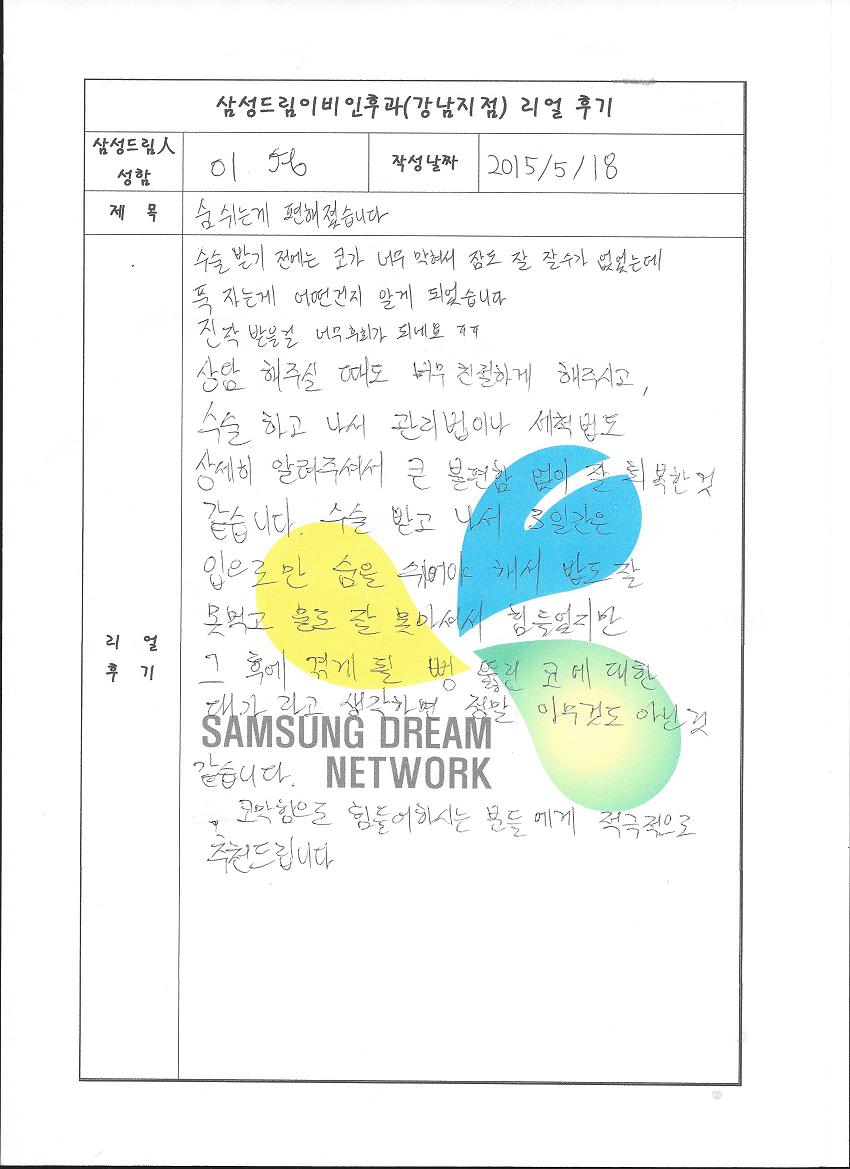 삼성드림이비인후과(강남지점) 리얼 후기
삼성드림人
성함
이
작성날짜
2015/5/18
제 목
숨 쉬는게 편해졌습니다
수술 받기 전에는 코가 너무 막혀서 잠도 잘 잘수가 없었는데
푹 자는게 어떤건지 알게 되었습니다
진작 받을걸 너무 후회가 되네요 ㅠㅠ
상담 해주실 때도 너무 친절하게 해주시고,
수술 하고 나서 관리법이나 세척법도
상세히 알려주셔서 큰 불편함 없이 잘 회복한 것
같습니다. 수술 받고 나서 3일간은
입으로만 숨을 쉬어야 해서 밥도 잘
못먹고 물도 잘 못마셔서 힘들었지만
리 얼
후 기
그 후에 겪게 될 뻥 뚫린 코에 대한
대가 라고 생각하면 정말 아무것도 아닌 것
같습니다.
SAMSUNG DREAM
NETWORK
코막힘으로 힘들어하시는 분들에게 적극적으로
추천드립니다